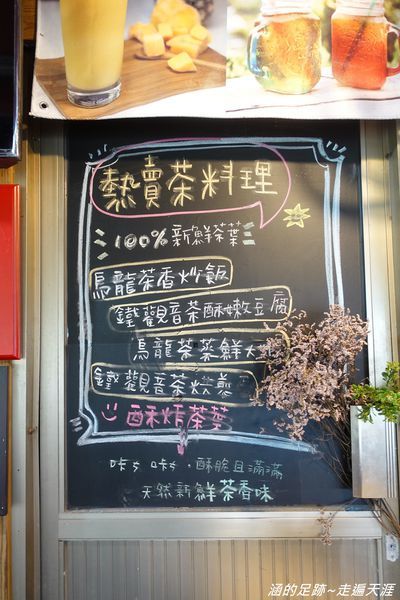 熱賣茶料理
100%新鮮茶葉
烏龍茶香炒飯
鐵觀音茶酥嫩豆腐
烏龍茶葉鮮大
鐵觀音茶炊蒸
酥炸茶葉
咔ㄘ咔ㄘ．酥脆且滿滿
天然新鮮茶香味
涵的足跡~走遍天涯